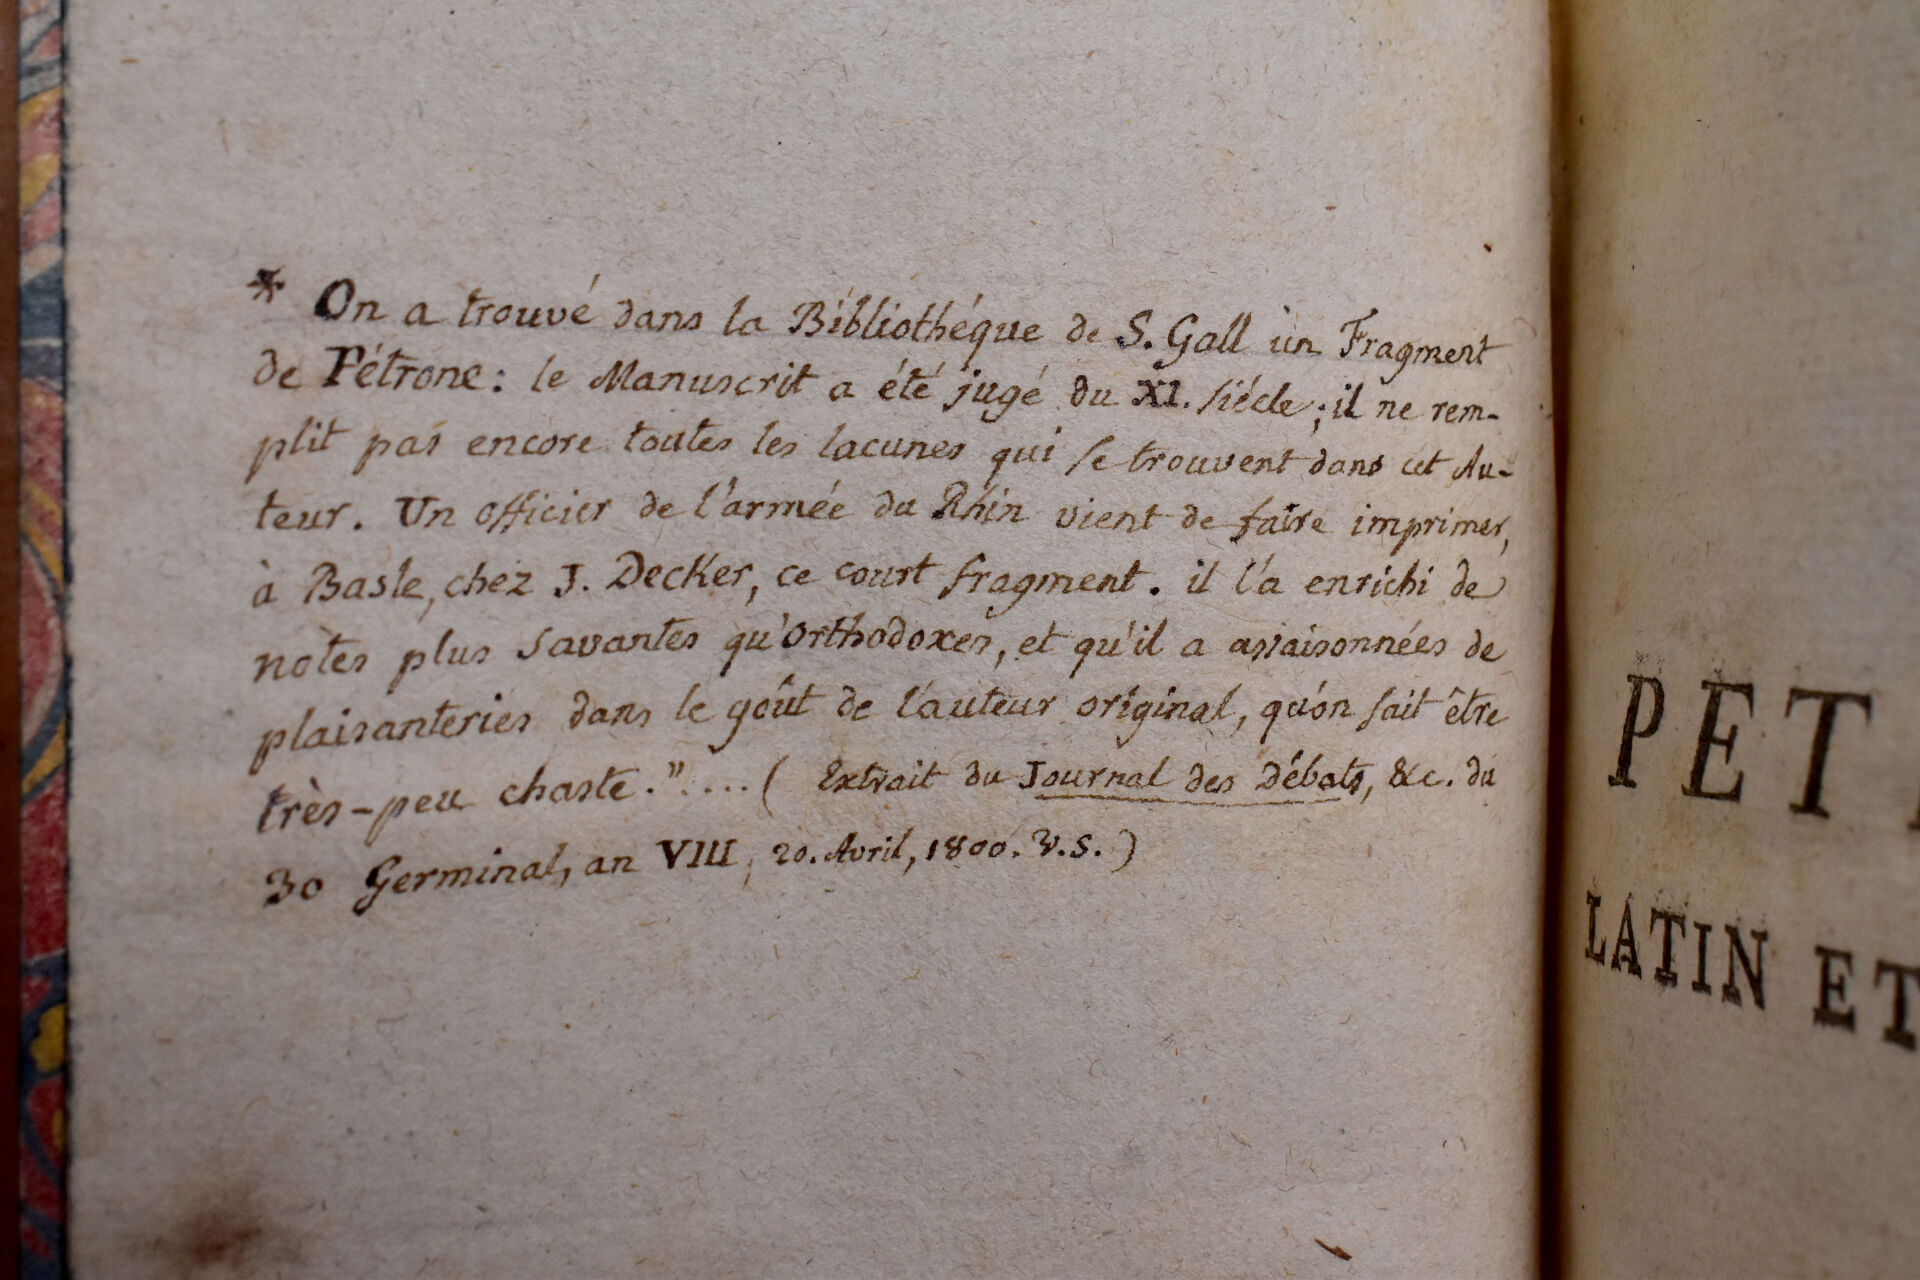 * On a trouvé dans la Bibliothéque de S. Gall un Fragment
de Pétrone : le Manuscrit a été jugé du XI. siécle ; il ne rem-
plit pas encore toutes les lacunes qui se trouvent dans cet Au-
teur. Un officier de l'armée du Rhin vient de faire imprimer,
à Basle, chez J. Decker, ce court fragment. il l'a enrichi de
notes plus savantes qu'Orthodoxes, et qu'il a assaisonnées de
plaisanteries dans le goût de l'auteur original, qu'on sait être
très-peu chaste.".... ( Extrait du Journal des Débats, &c. du
30 Germinal, an VIII, 20. Avril, 1800. V.S. )
PET
LATIN ET